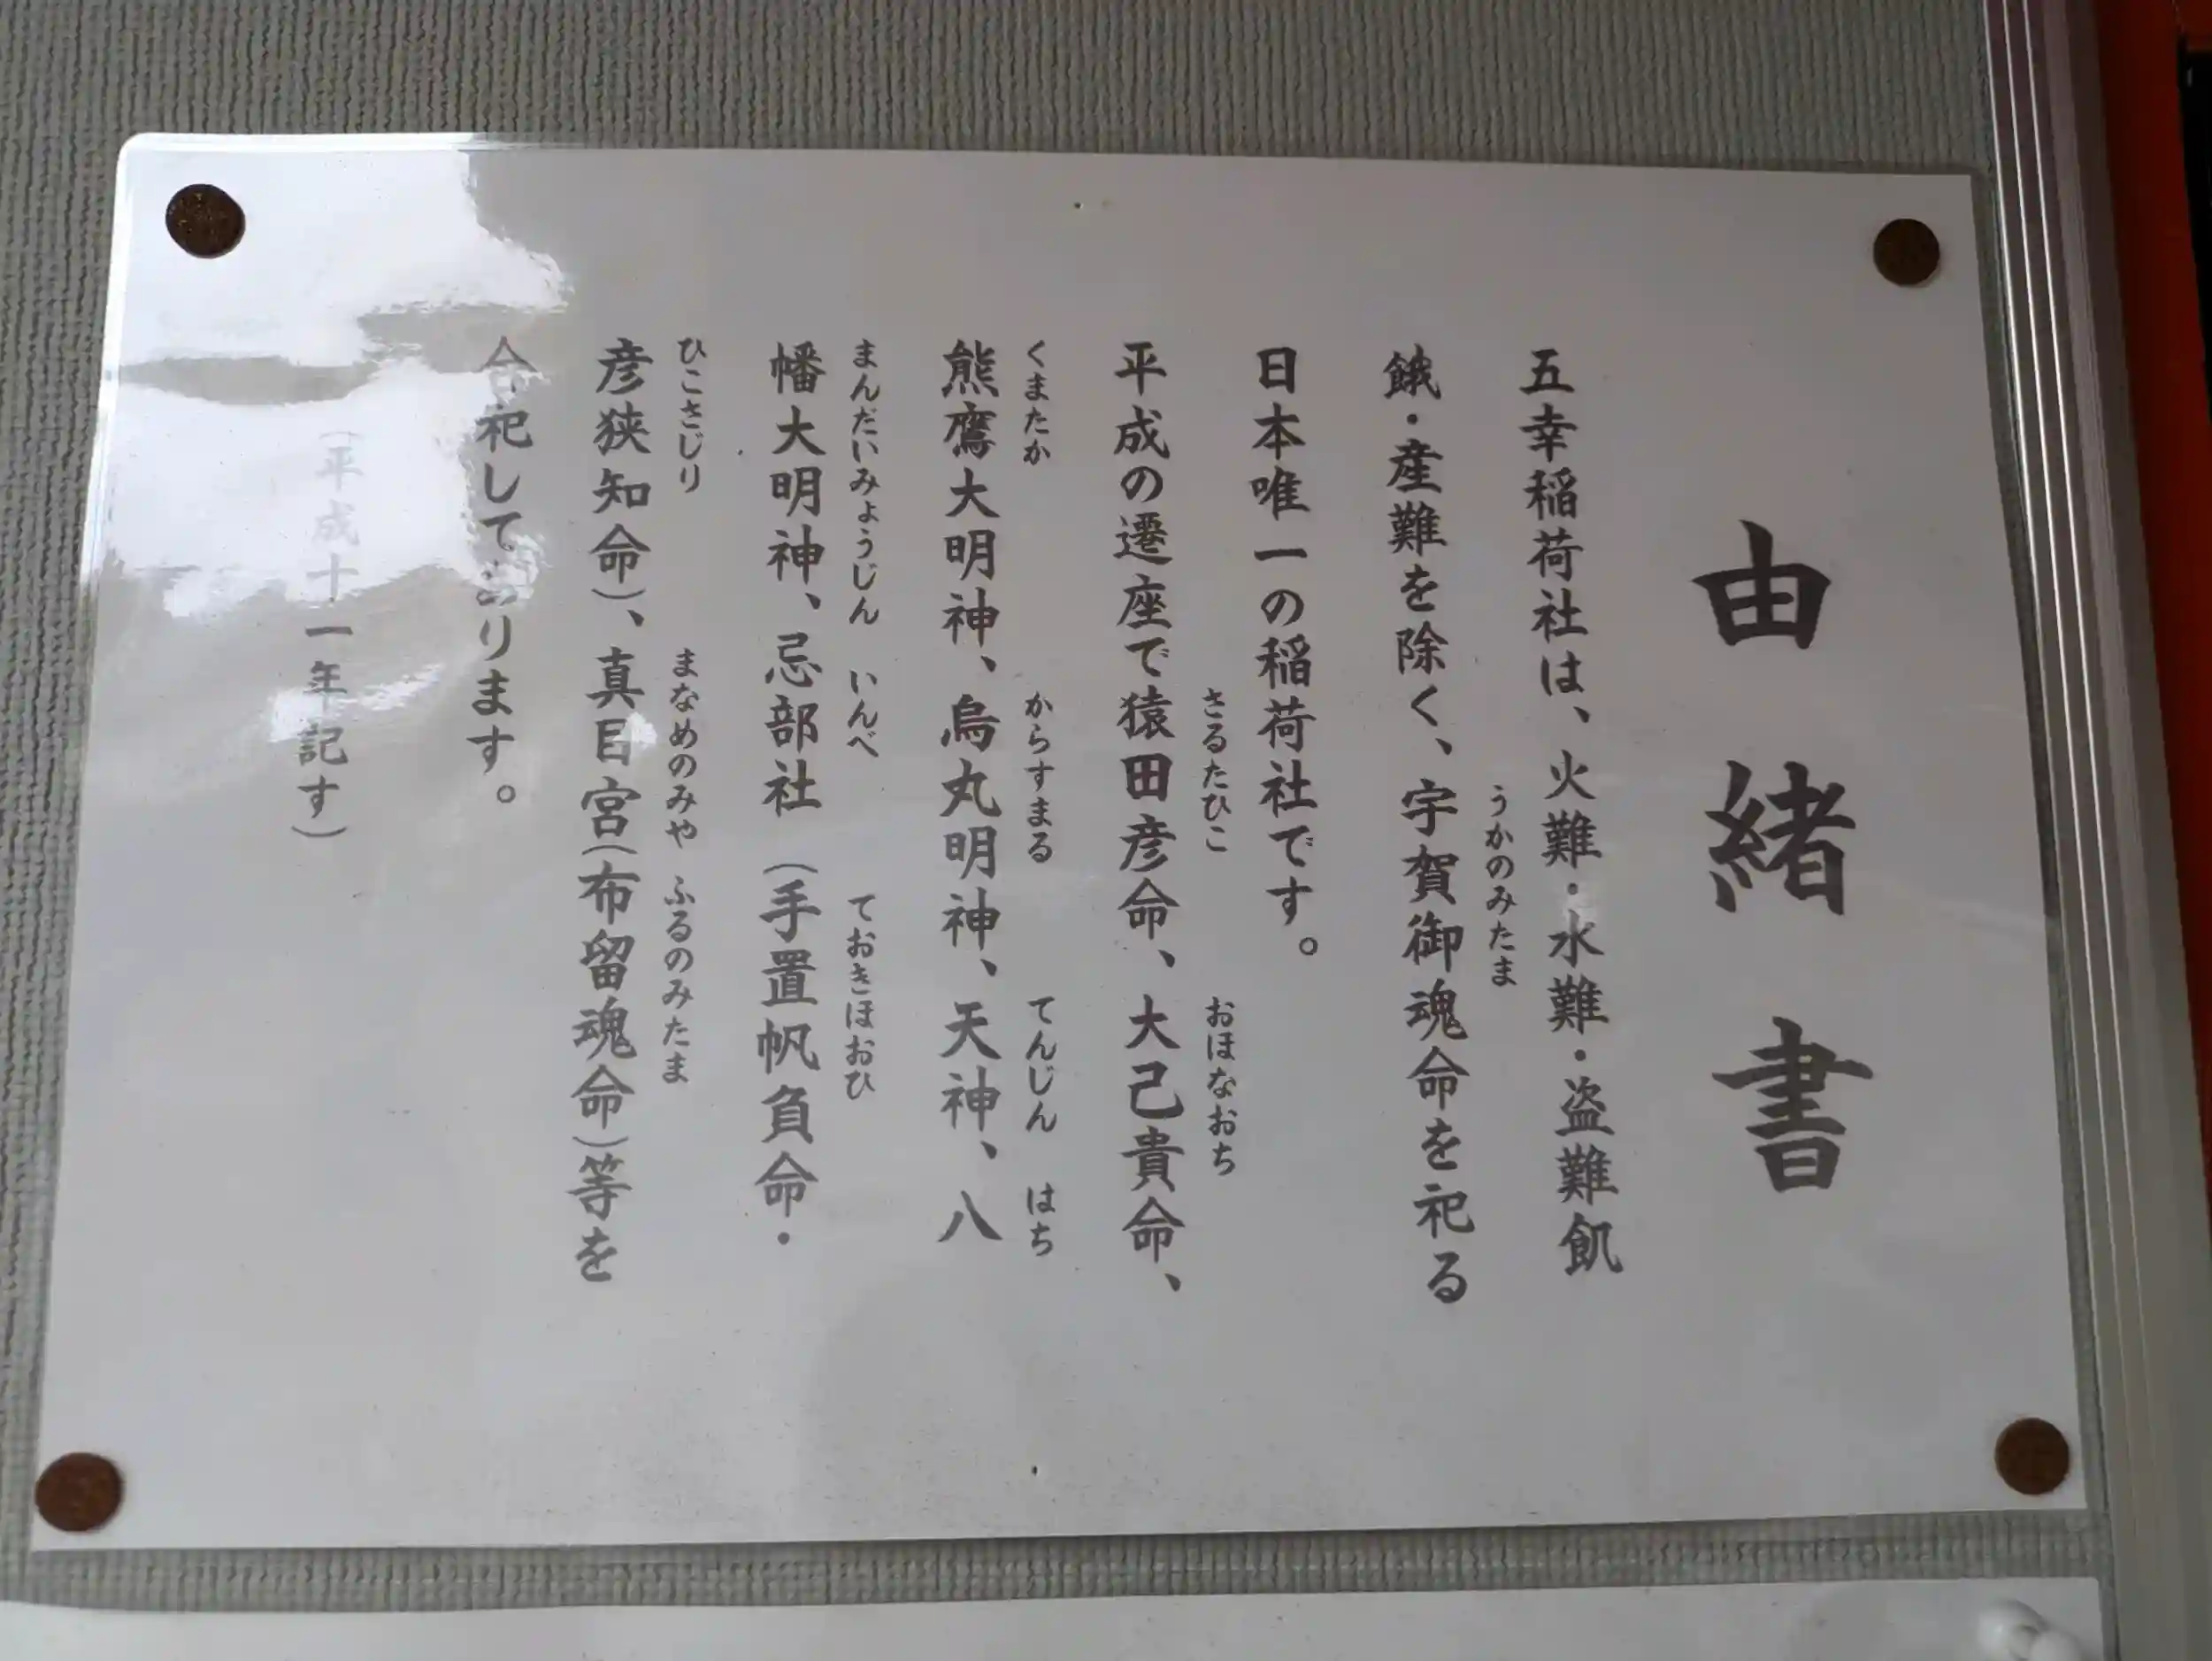 由緒書
五幸稲荷社は、火難・水難・盗難飢
うかのみたま
餓・産難を除く、宇賀御魂命を祀る
日本唯一の稲荷社です。
さるたひこ おほなおち
平成の遷座で猿田彦命、大己貴命、
くまたか からすまる てんじん はち
熊鷹大明神、烏丸明神、天神、八
まんだいみょうじん いんべ ておきほおひ
幡大明神、忌部社(手置帆負命・
ひこさじり まなめのみや ふるのみたま
彦狭知命)、真目宮(布留魂命)等を
合祀しております。
(平成十一年記す)